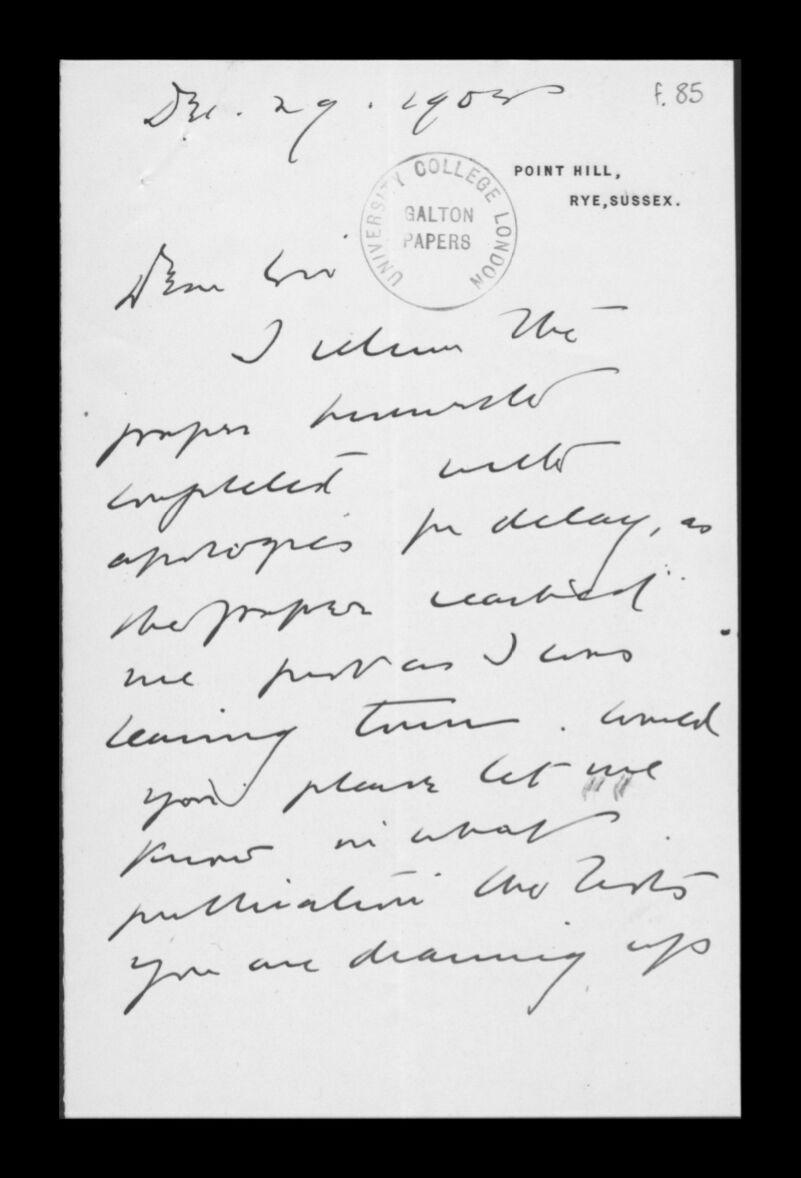 f. 85
Dec. 29. 190
POINT HILL,
RYE, SUSSEX.
UNIVERSITY COLLEGE LONDON
GALTON
PAPERS
Dear Sir
I return the
paper herewith
completed with
apologies for delay, as
the paper reached
me just as I was
leaving town. Would
you please let me
know in what
publication the lists
you are drawing up